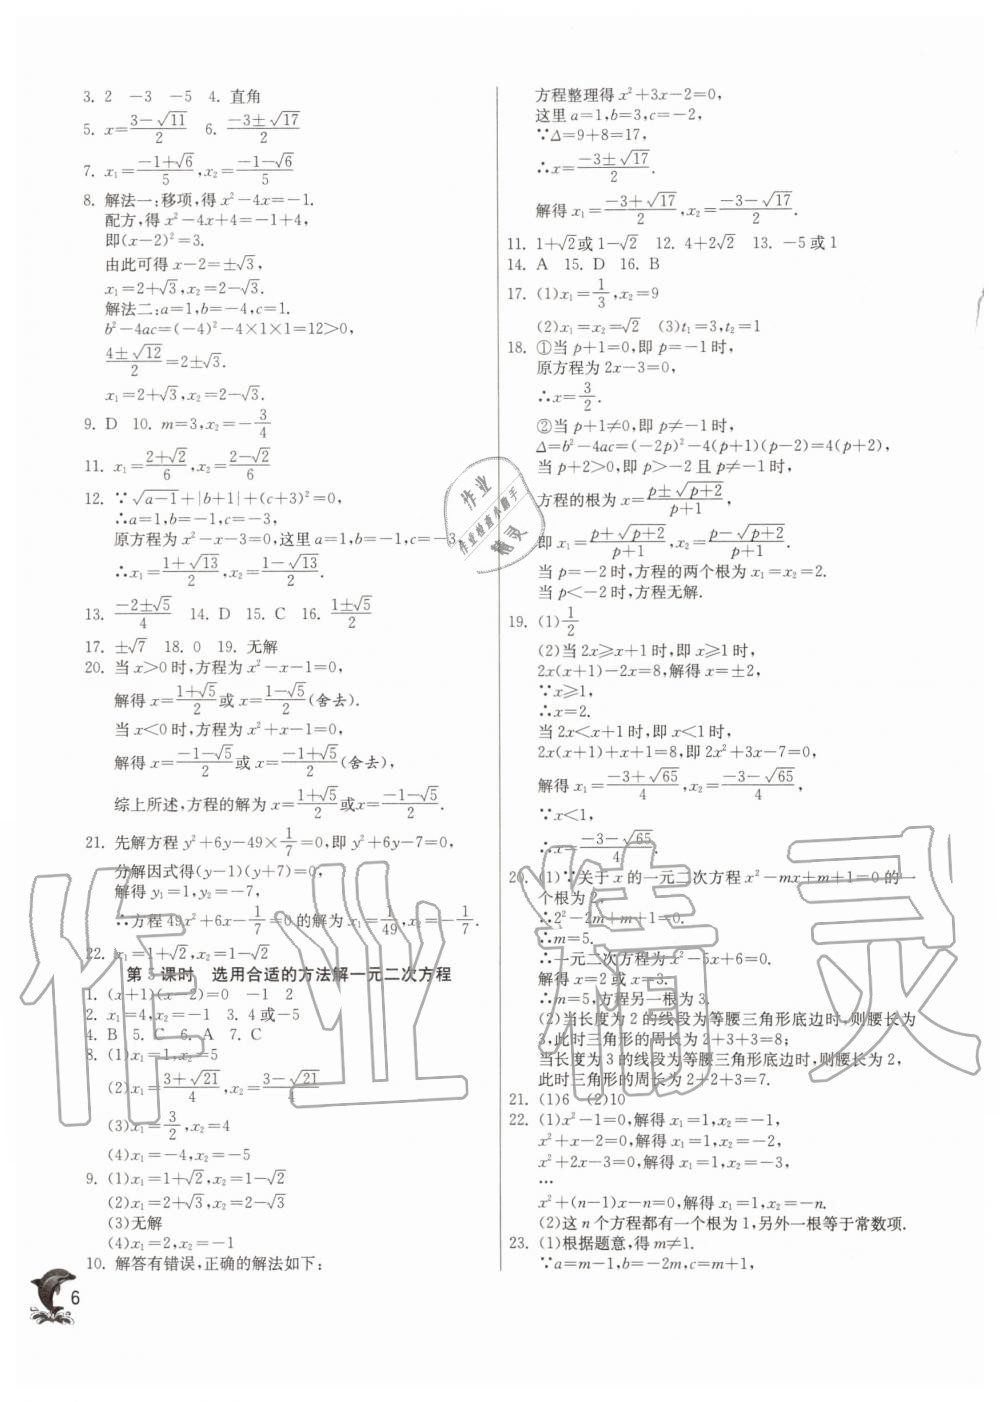 3. 2 −3 −5 4. 直角
5. x=(3−√11)/2 6. (−3±√17)/2
7. x₁=(−1+√6)/5,x₂=(−1−√6)/5
8. 解法一:移项,得 x²−4x=−1.
配方,得 x²−4x+4=−1+4,
即(x−2)²=3.
由此可得 x−2=±√3,
x₁=2+√3,x₂=2−√3.
解法二:a=1,b=−4,c=1.
b²−4ac=(−4)²−4×1×1=12>0,
(4±√12)/2=2±√3.
x₁=2+√3,x₂=2−√3.
9. D 10. m=3,x₂=−3/4
11. x₁=(2+√2)/6,x₂=(2−√2)/6
12. ∵√(a−1)+|b+1|+(c+3)²=0,
∴a=1,b=−1,c=−3,
原方程为 x²−x−3=0,这里 a=1,b=−1,c=−3,
∴x₁=(1+√13)/2,x₂=(1−√13)/2.
13. (−2±√5)/4 14. D 15. C 16. (1±√5)/2
17. ±√7 18. 0 19. 无解
20. 当 x>0 时,方程为 x²−x−1=0,
解得 x=(1+√5)/2或 x=(1−√5)/2(舍去).
当 x<0 时,方程为 x²+x−1=0,
解得 x=(−1−√5)/2或 x=(−1+√5)/2(舍去),
综上所述,方程的解为 x=(1+√5)/2或x=(−1−√5)/2.
21. 先解方程 y²+6y−49×1/7=0,即 y²+6y−7=0,
分解因式得(y−1)(y+7)=0,
解得 y₁=1,y₂=−7,
∴方程 49x²+6x−1/7=0 的解为 x₁=1/49,x₂=−1/7.
22. x₁=1+√2,x₂=1−√2
第 5 课时 选用合适的方法解一元二次方程
1. (x+1)(x−2)=0 −1 2
2. x₁=4,x₂=−1 3. 4或−5
4. B 5. C 6. A 7. C
8. (1)x₁=1,x₂=5
(2)x₁=(3+√21)/4,x₂=(3−√21)/4
(3)x₁=3/2,x₂=4
(4)x₁=−4,x₂=−5
9. (1)x₁=1+√2,x₂=1−√2
(2)x₁=2+√3,x₂=2−√3
(3)无解
(4)x₁=2,x₂=−1
10. 解答有错误,正确的解法如下:
6
方程整理得 x²+3x−2=0,
这里 a=1,b=3,c=−2,
∵Δ=9+8=17,
∴x=(−3±√17)/2.
解得 x₁=(−3+√17)/2,x₂=(−3−√17)/2.
11. 1+√2或 1−√2 12. 4+2√2 13. −5 或 1
14. A 15. D 16. B
17. (1)x₁=1/3,x₂=9
(2)x₁=x₂=√2 (3)t₁=3,t₂=1
18. ①当 p+1=0,即 p=−1 时,
原方程为 2x−3=0,
∴x=3/2.
②当 p+1≠0,即 p≠−1 时,
Δ=b²−4ac=(−2p)²−4(p+1)(p−2)=4(p+2),
当 p+2>0,即 p>−2 且 p≠−1 时,
方程的根为 x=(p±√(p+2))/(p+1),
即 x₁=(p+√(p+2))/(p+1),x₂=(p−√(p+2))/(p+1).
当 p=−2 时,方程的两个根为 x₁=x₂=2.
当 p<−2 时,方程无解.
19. (1)1/2
(2)当 2x≥x+1 时,即 x≥1 时,
2x(x+1)−2x=8,解得 x=±2,
∵x≥1,
∴x=2.
当 2x<x+1 时,即 x<1 时,
2x(x+1)+x+1=8,即 2x²+3x−7=0,
解得 x₁=(−3+√65)/4,x₂=(−3−√65)/4,
∵x<1,
∴x=(−3−√65)/4.
20. (1)∵关于 x 的一元二次方程 x²−mx+m+1=0 的一
个根为 2,
∴2²−2m+m+1=0.
∴m=5.
∴一元二次方程为 x²−5x+6=0.
解得 x=2 或 x=3.
∴m=5,方程另一根为 3.
(2)当长度为 2 的线段为等腰三角形底边时,则腰长为
3,此时三角形的周长为 2+3+3=8;
当长度为 3 的线段为等腰三角形底边时,则腰长为 2,
此时三角形的周长为 2+2+3=7.
21. (1)6 (2)10
22. (1)x²−1=0,解得 x₁=1,x₂=−1,
x²+x−2=0,解得 x₁=1,x₂=−2,
x²+2x−3=0,解得 x₁=1,x₂=−3,
…
x²+(n−1)x−n=0,解得 x₁=1,x₂=−n.
(2)这 n 个方程都有一个根为 1,另外一根等于常数项.
23. (1)根据题意,得 m≠1.
∵a=m−1,b=−2m,c=m+1,
作业
作业检查小助手
精灵
作业精灵